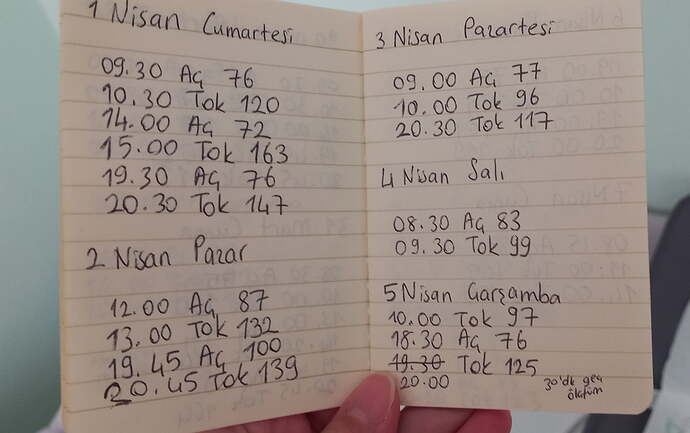 1 Nisan Cumartesi
09.30 Aç 76
10.30 Tok 120
14.00 Aç 72
15.00 Tok 163
19.30 Aç 76
20.30 Tok 147
2 Nisan Pazar
12.00 Aç 87
13.00 Tok 132
19.45 Aç 100
20.45 Tok 139
3 Nisan Pazartesi
09.00 Aç 77
10.00 Tok 96
20.30 Tok 117
4 Nisan Salı
08.30 Aç 83
09.30 Tok 99
5 Nisan Çarşamba
10.00 Tok 97
18.30 Aç 76
19.30 Tok 125
20.00 30'dk geç
ölçtüm